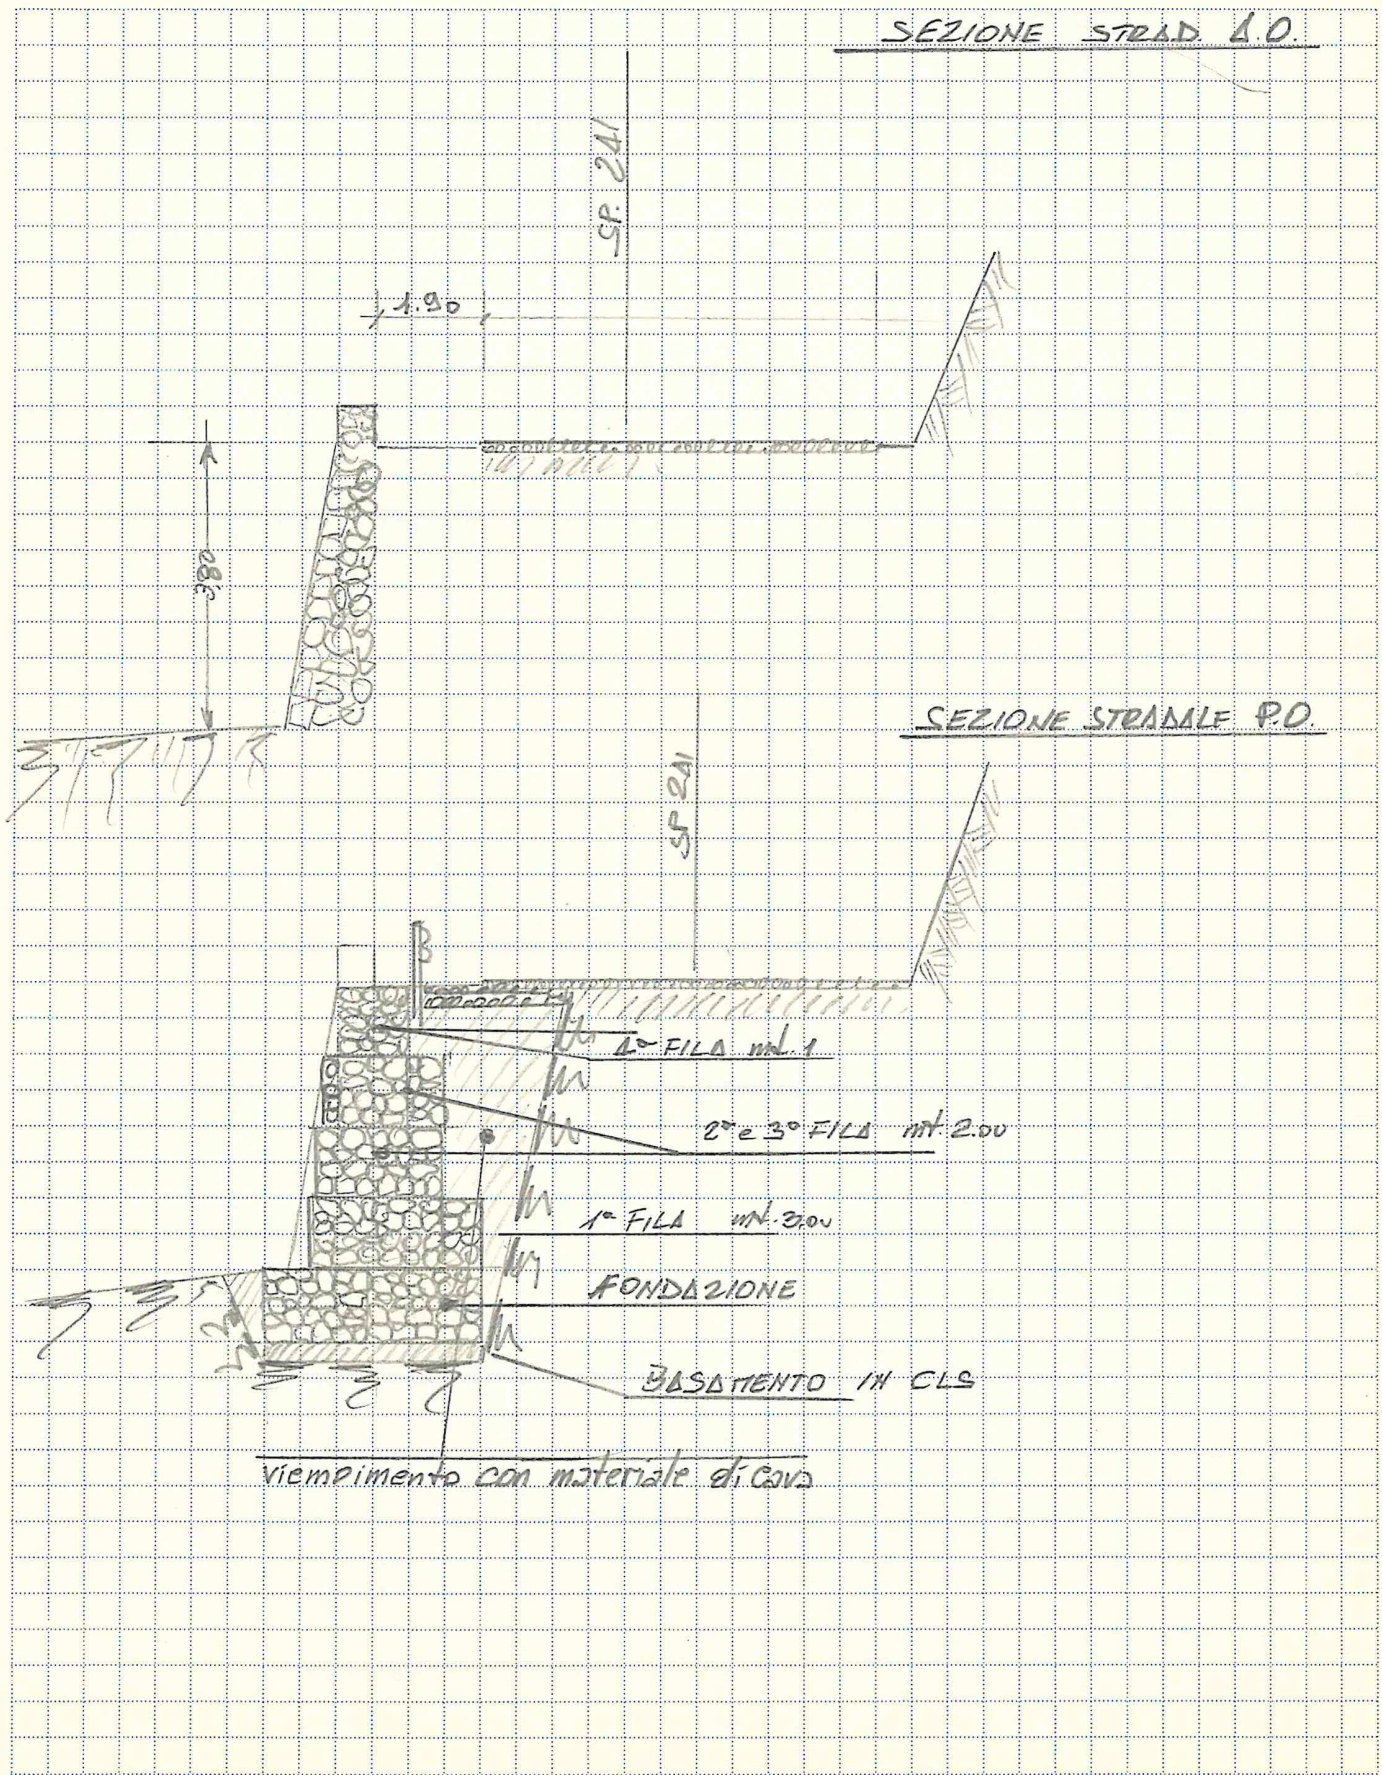 SEZIONE STRAD. A.O.
SP. 241
1.90
3,80
SEZIONE STRADALE P.O.
SP 241
4ª FILA mt. 1
2ª e 3ª FILA mt. 2.00
1ª FILA mt. 3.00
FONDAZIONE
BASAMENTO IN CLS
riempimento con materiale di cava